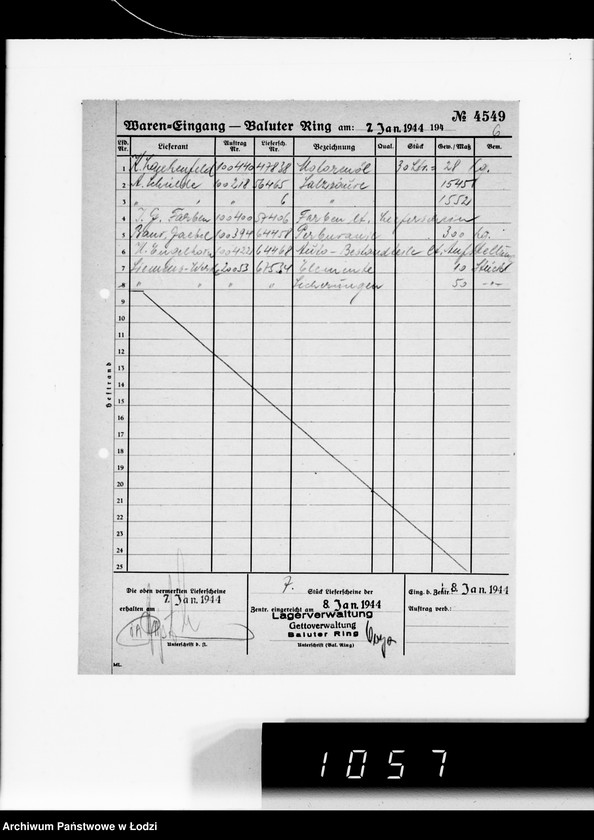 № 4549
Waren=Eingang — Baluter Ring am: 7. Jan. 1944 194
6
Lfd. Nr. Lieferant Auftrag Nr. Liefersch. Nr. Bezeichnung Qual. Stück Gew./Maß Bem.
1 100440 47838 Motorenöl 28 kg.
2 A. Schulde 100218 56465 Salzsäure 1545
3 " " 6 " 1552
4 I. G. Farben 100400 57406 Farben lt. Lieferschein
5 100394 64458 300 kg.
6 H. Engelhorn 100422 64468 Auto-Bestandteile lt. Aufstellung
7 Siemens-Werke 20053 67534 Elemente 10 Stück
8 " " " " Sicherungen 50 -"-
9
10
11
12
13
14
15
16
17
18
19
20
21
22
23
24
25
Heftrand
Die oben vermerkten Lieferscheine
7. Jan. 1944
erhalten am
Unterschrift d. f.
7. Stück Lieferscheine der
Zentr. eingereicht am 8. Jan. 1944
Lagerverwaltung
Gettoverwaltung
Baluter Ring
Unterschrift (Bal. Ring)
Eing. b. Zentr. 8. Jan. 1944
Auftrag verb.:
ML.
1057
Archiwum Państwowe w Łodzi